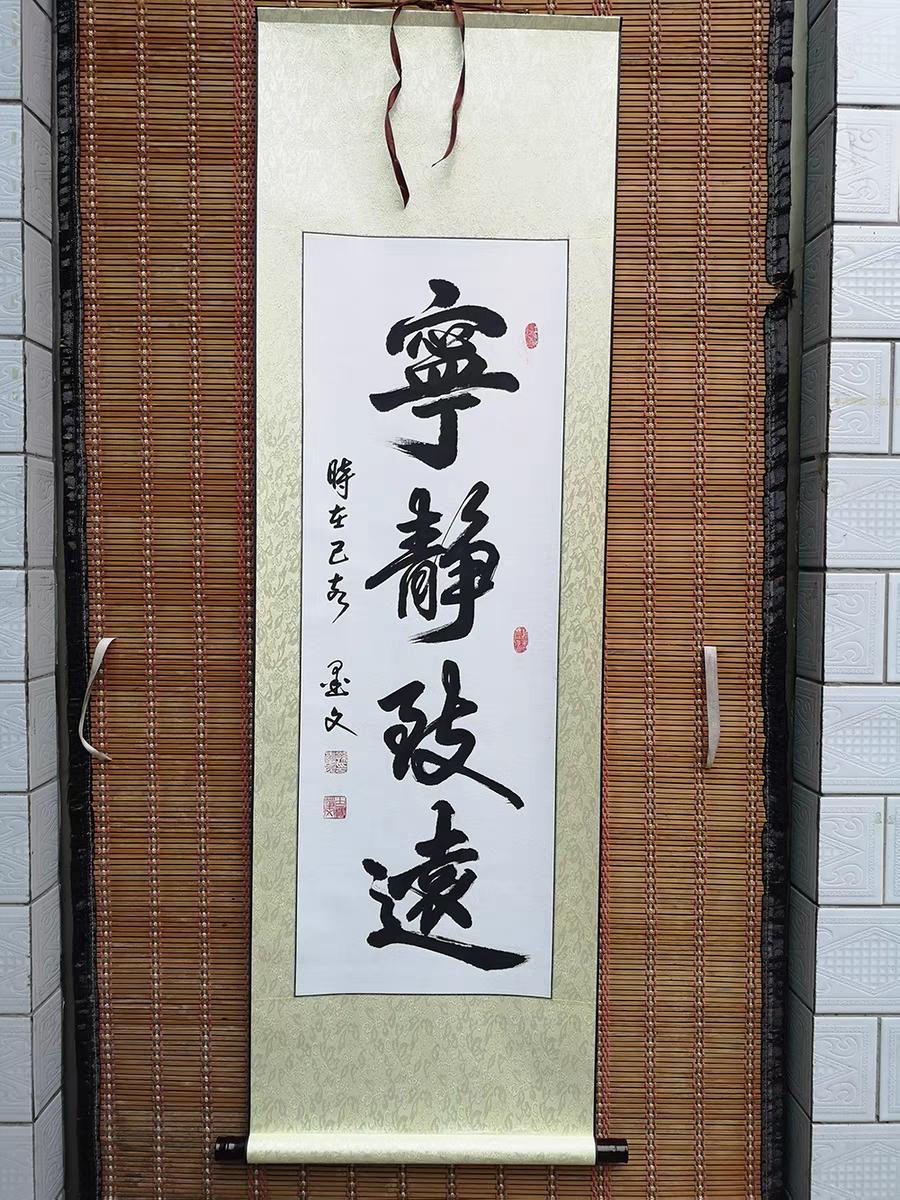 寧靜致遠
時在己亥 墨文